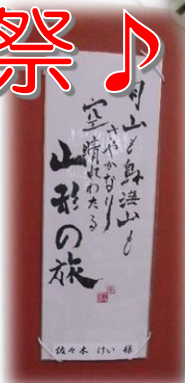 祭♪
月山も鳥海山も
さやかなり
空晴れわたる
山形の旅
佐々木 けい 様